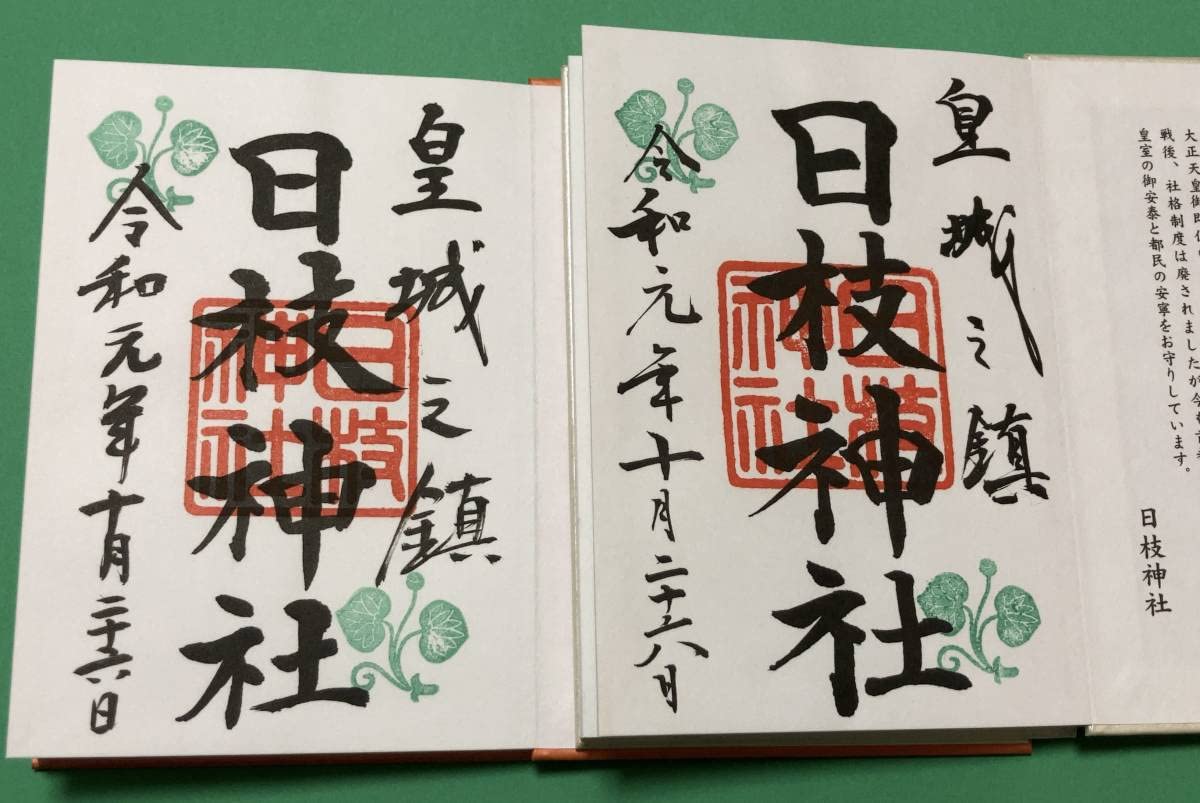 皇城之鎮
日枝神社
令和元年十月二十六日
日枝
神社
大正天皇御即位
戦後、社格制度は廃されましたが今も
皇室の御安泰と都民の安寧をお守りしています。
日枝神社
皇城之鎮
日枝神社
令和元年十月二十六日
日枝
神社